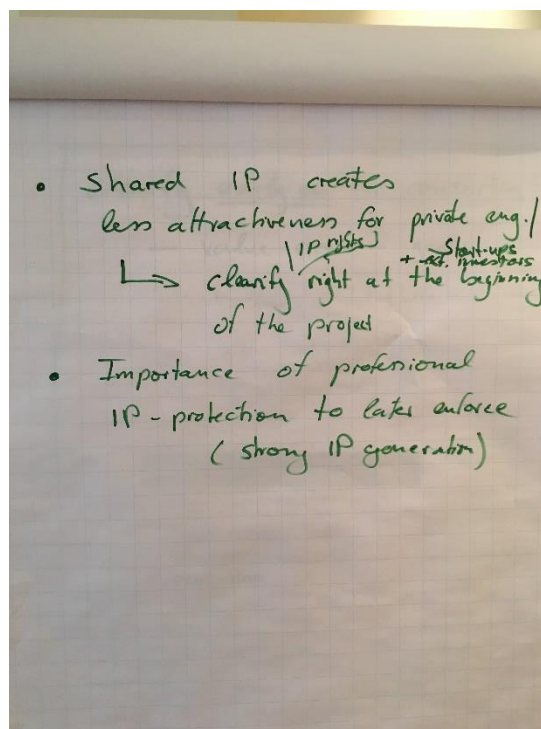 • Shared IP creates
less attractiveness for private eng./
Start-ups
IP rights
+ ext. investors
↳ clearify right at the beginning
of the project
• Importance of professional
IP-protection to later enforce
(strong IP generation)